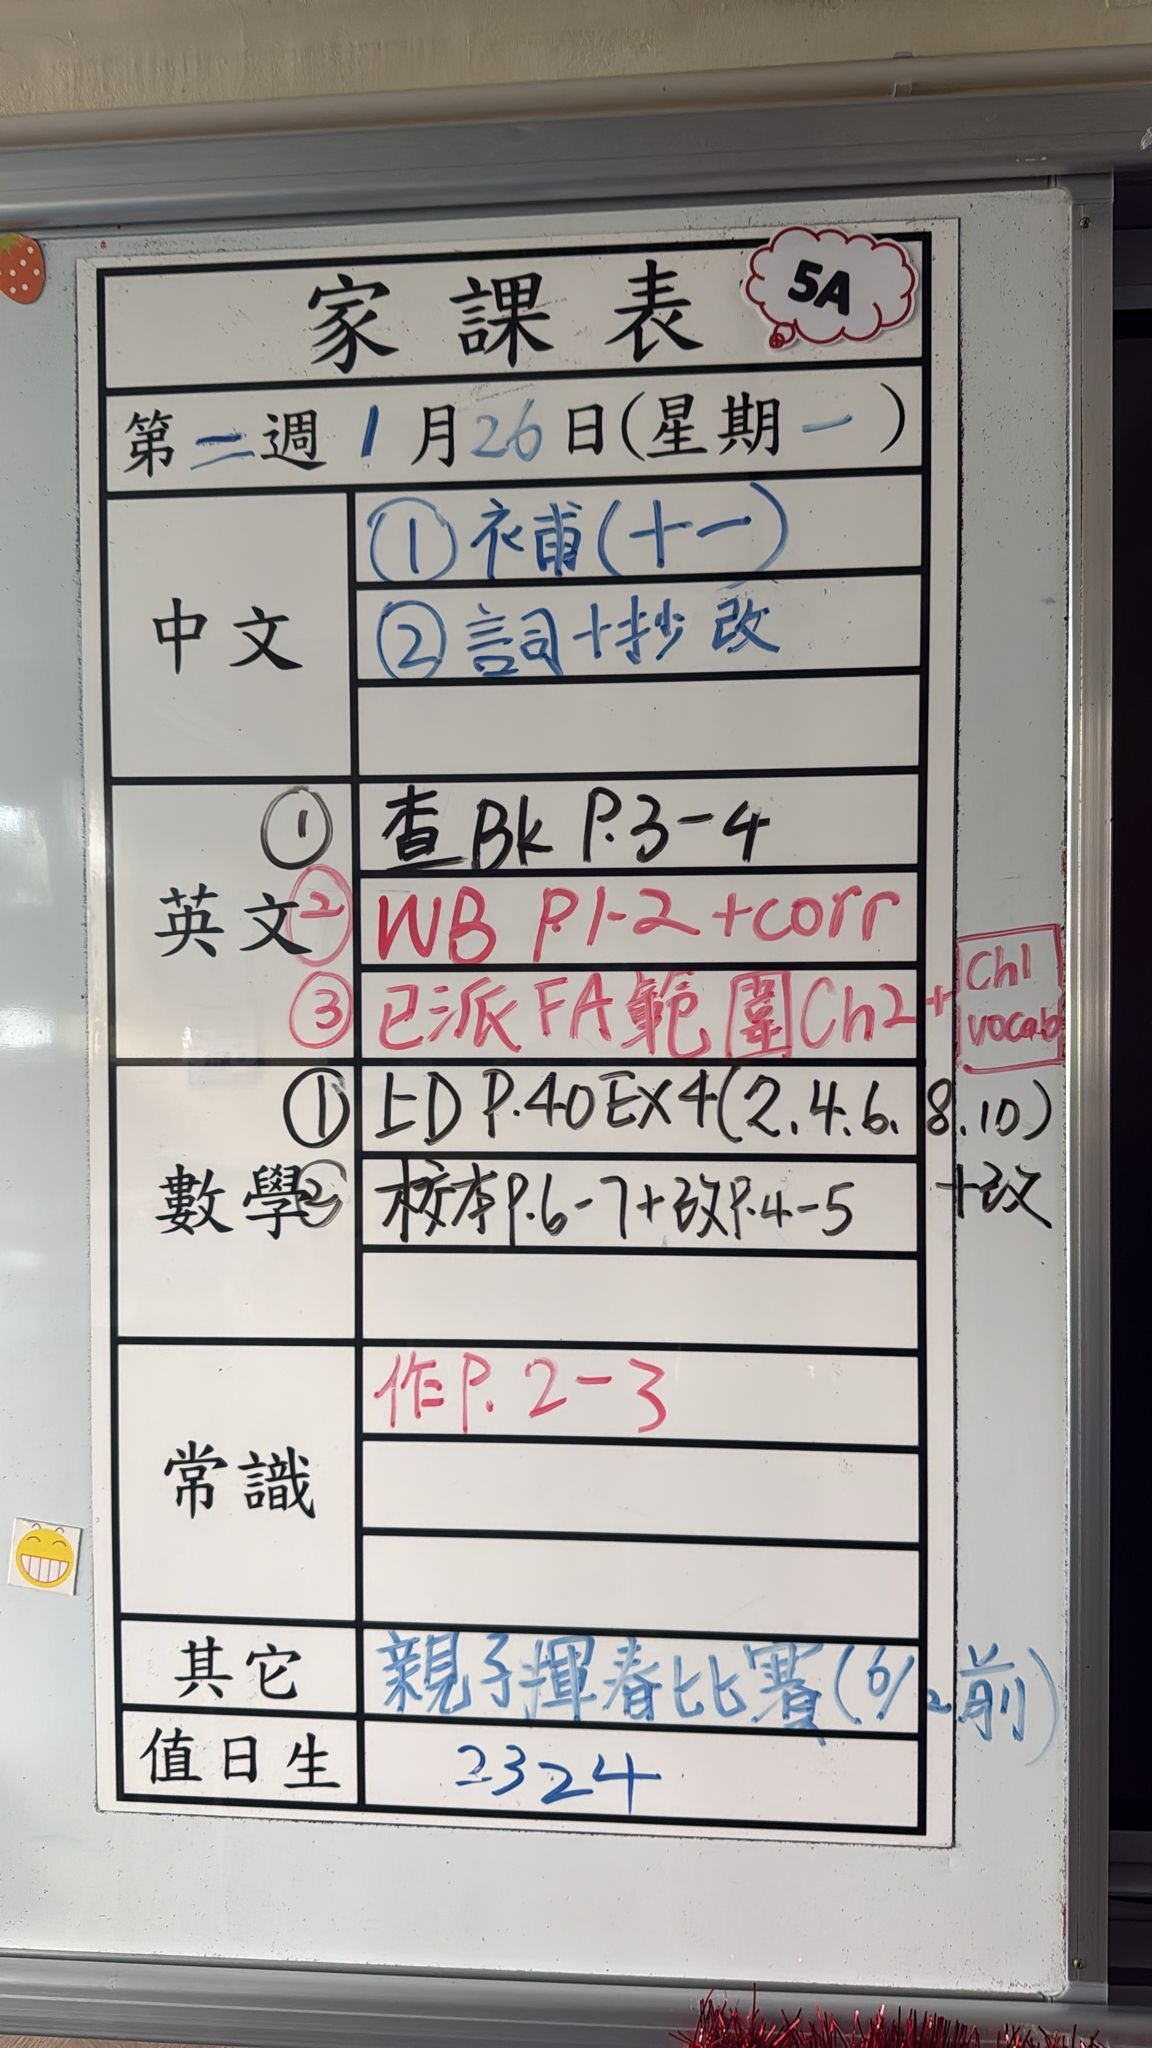 家課表
5A
第二週 1月26日(星期一)
中文
① 補(十一)
② 詞十抄改
英文
① 查BK P.3-4
② WB P.1-2+corr
③ 已派FA範圍Ch2+
Ch1
vocab
數學
① 上D P.40 EX4(2.4.6.8.10)
+改
② 校本P.6-7+改P.4-5
常識
作P. 2-3
其它
親子揮春比賽(6/2前)
值日生
23 24